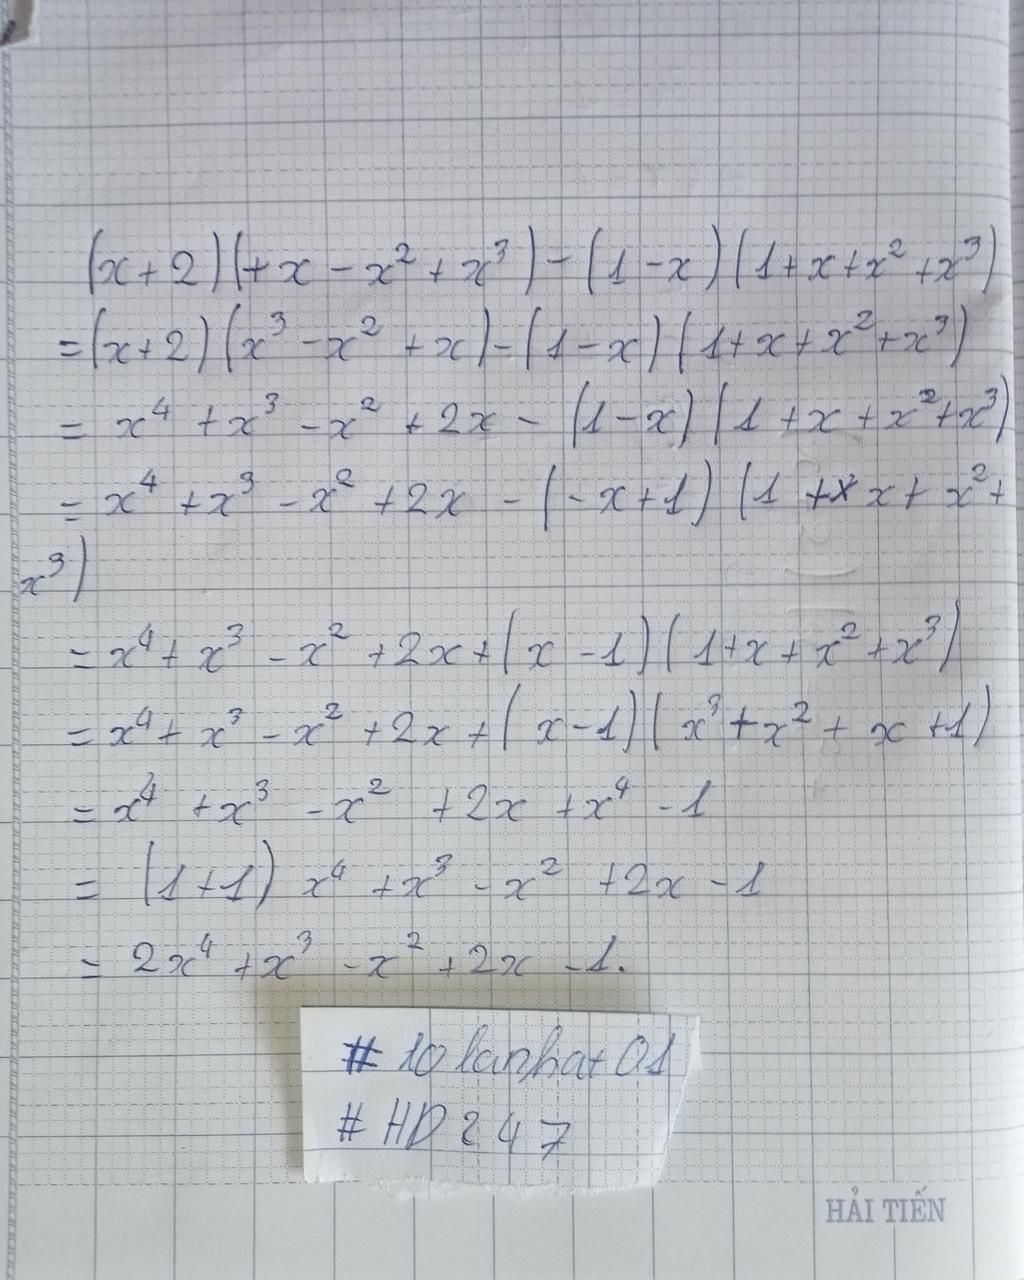 (x+2)(+x-x²+x³)-(1-x)(1+x+x²+x³)
=(x+2)(x³-x²+x)-(1-x)(1+x+x²+x³)
= x⁴+x³-x²+2x-(1-x)(1+x+x²+x³)
= x⁴+x³-x²+2x-(-x+1)(1+x+x²+
x³)
= x⁴+x³-x²+2x+(x-1)(1+x+x²+x³)
= x⁴+x³-x²+2x+(x-1)(x³+x²+x+1)
= x⁴+x³-x²+2x+x⁴-1
= (1+1)x⁴+x³-x²+2x-1
= 2x⁴+x³-x²+2x-1.
#10lanhat01
#HD247
HẢI TIẾN